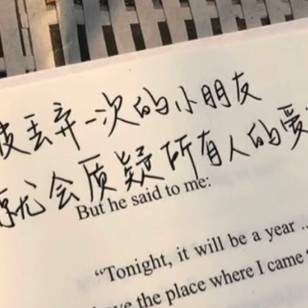 被丢弃一次的小朋友
就会质疑所有人的爱
But he said to me:
“Tonight, it will be a year ...
the place where I came